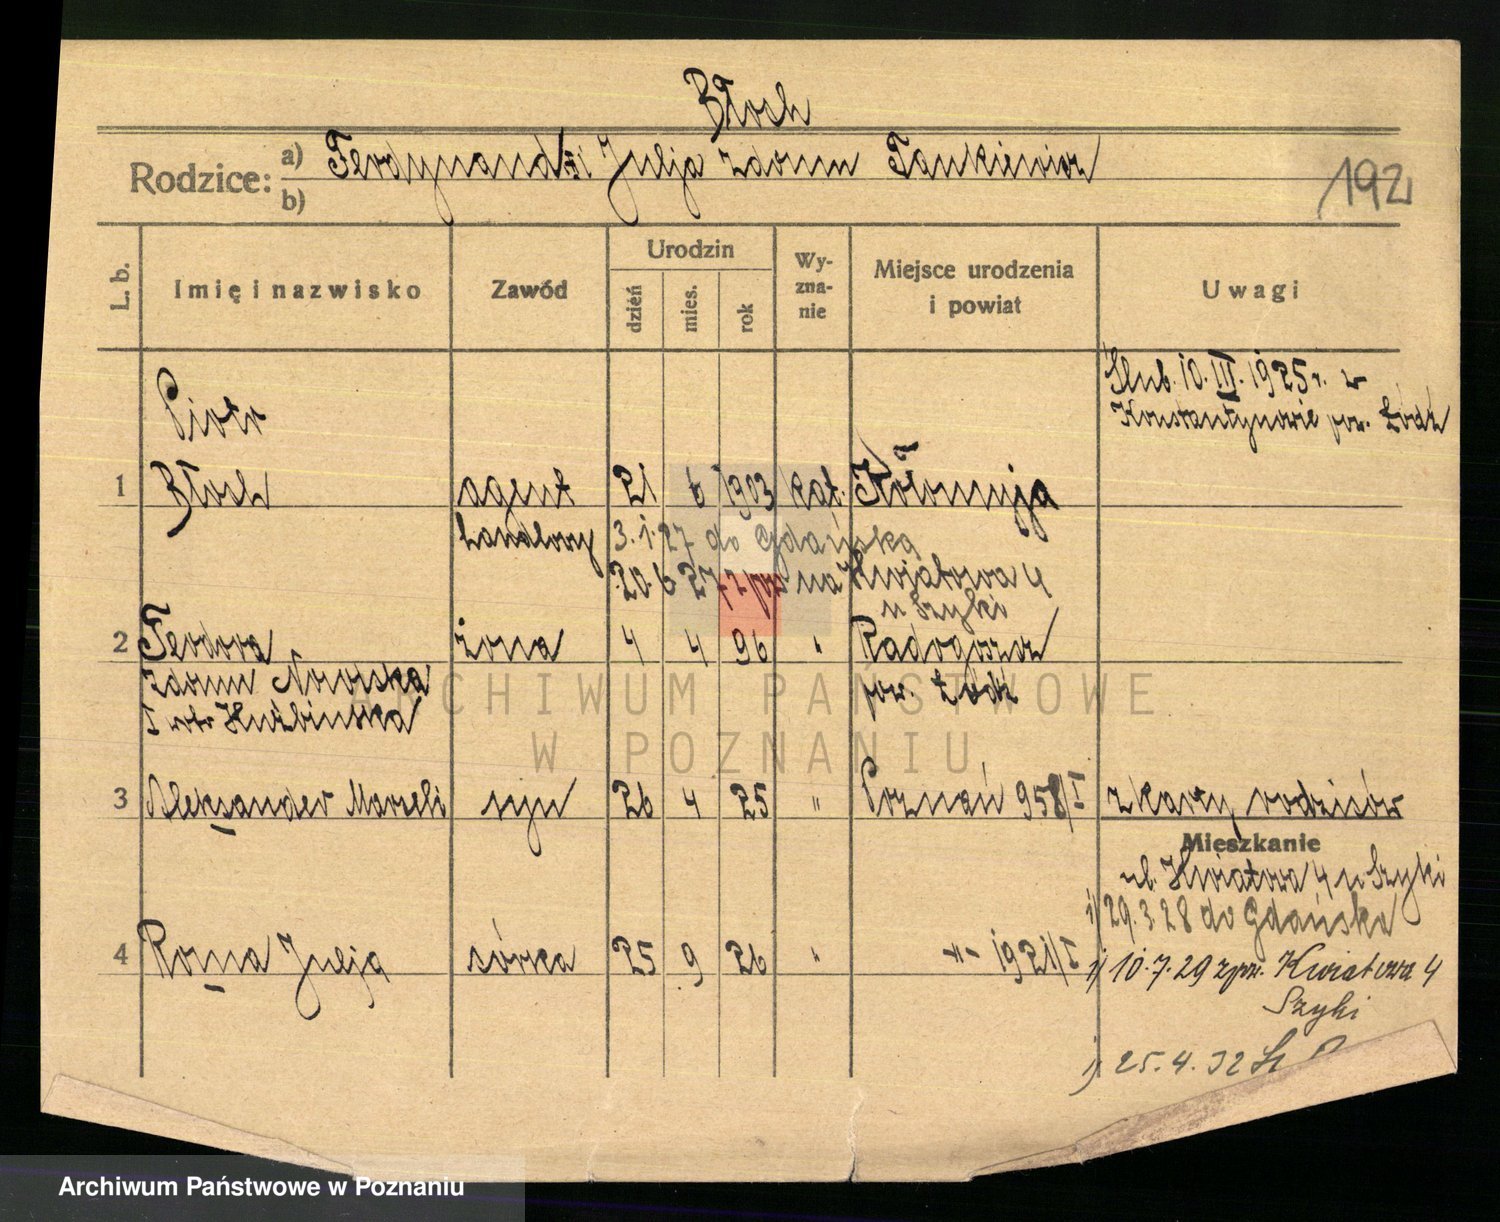 Błoch
Rodzice: a) Ferdynand i Julja zdomu Tankiewicz
b)
192
L. b.
Imię i nazwisko
Zawód
Urodzin
dzień
mies.
rok
Wy-
zna-
nie
Miejsce urodzenia
i powiat
Uwagi
Ślub. 10. III. 1925 r. w
Konstantynowie pow. Łódź
Piotr
1 Błoch agent 21 6 1903 kat. Kołomyja
handlowy 3. 1. 27 do Gdańska
20. 6 27 z pow na Kwiatowa 4
u Szyki
2 Teodora żona 4 4 96 " Radogoszcz
zdomu Noworska pow. Łódź
I
3 Aleksander Marzeli syn 26 4 25 " Poznań 958/I z karty rodziców
Mieszkanie
ul. Kwiatowa 4 u Szyki
1) 29. 3. 28 do Gdańska
4 Rozna Julja córka 25 9 26 " -"- 1921/I 1) 10. 7. 29 zpow. Kwiatowa 4
Szyki
1) 25. 4. 32
ARCHIWUM PAŃSTWOWE
W POZNANIU
Archiwum Państwowe w Poznaniu